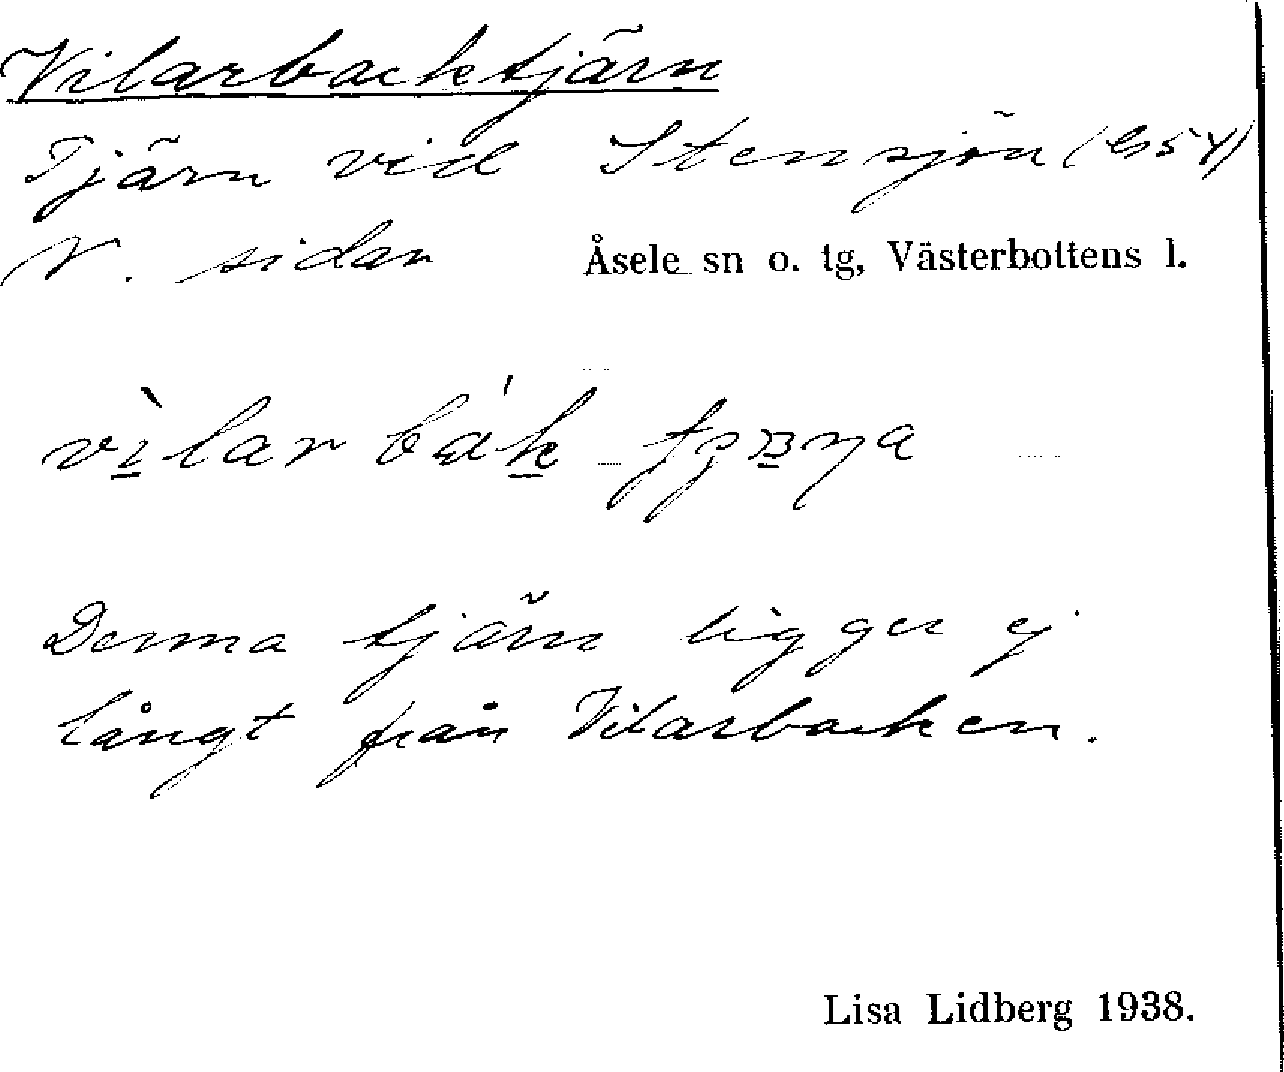 Vilarbacktjärn
Tjärn vid Stensjön
V. sidan Åsele sn o. tg, Västerbottens l.
vìlarbák
Denna tjärn ligger ej
långt från Vilarbacken.
Lisa Lidberg 1938.